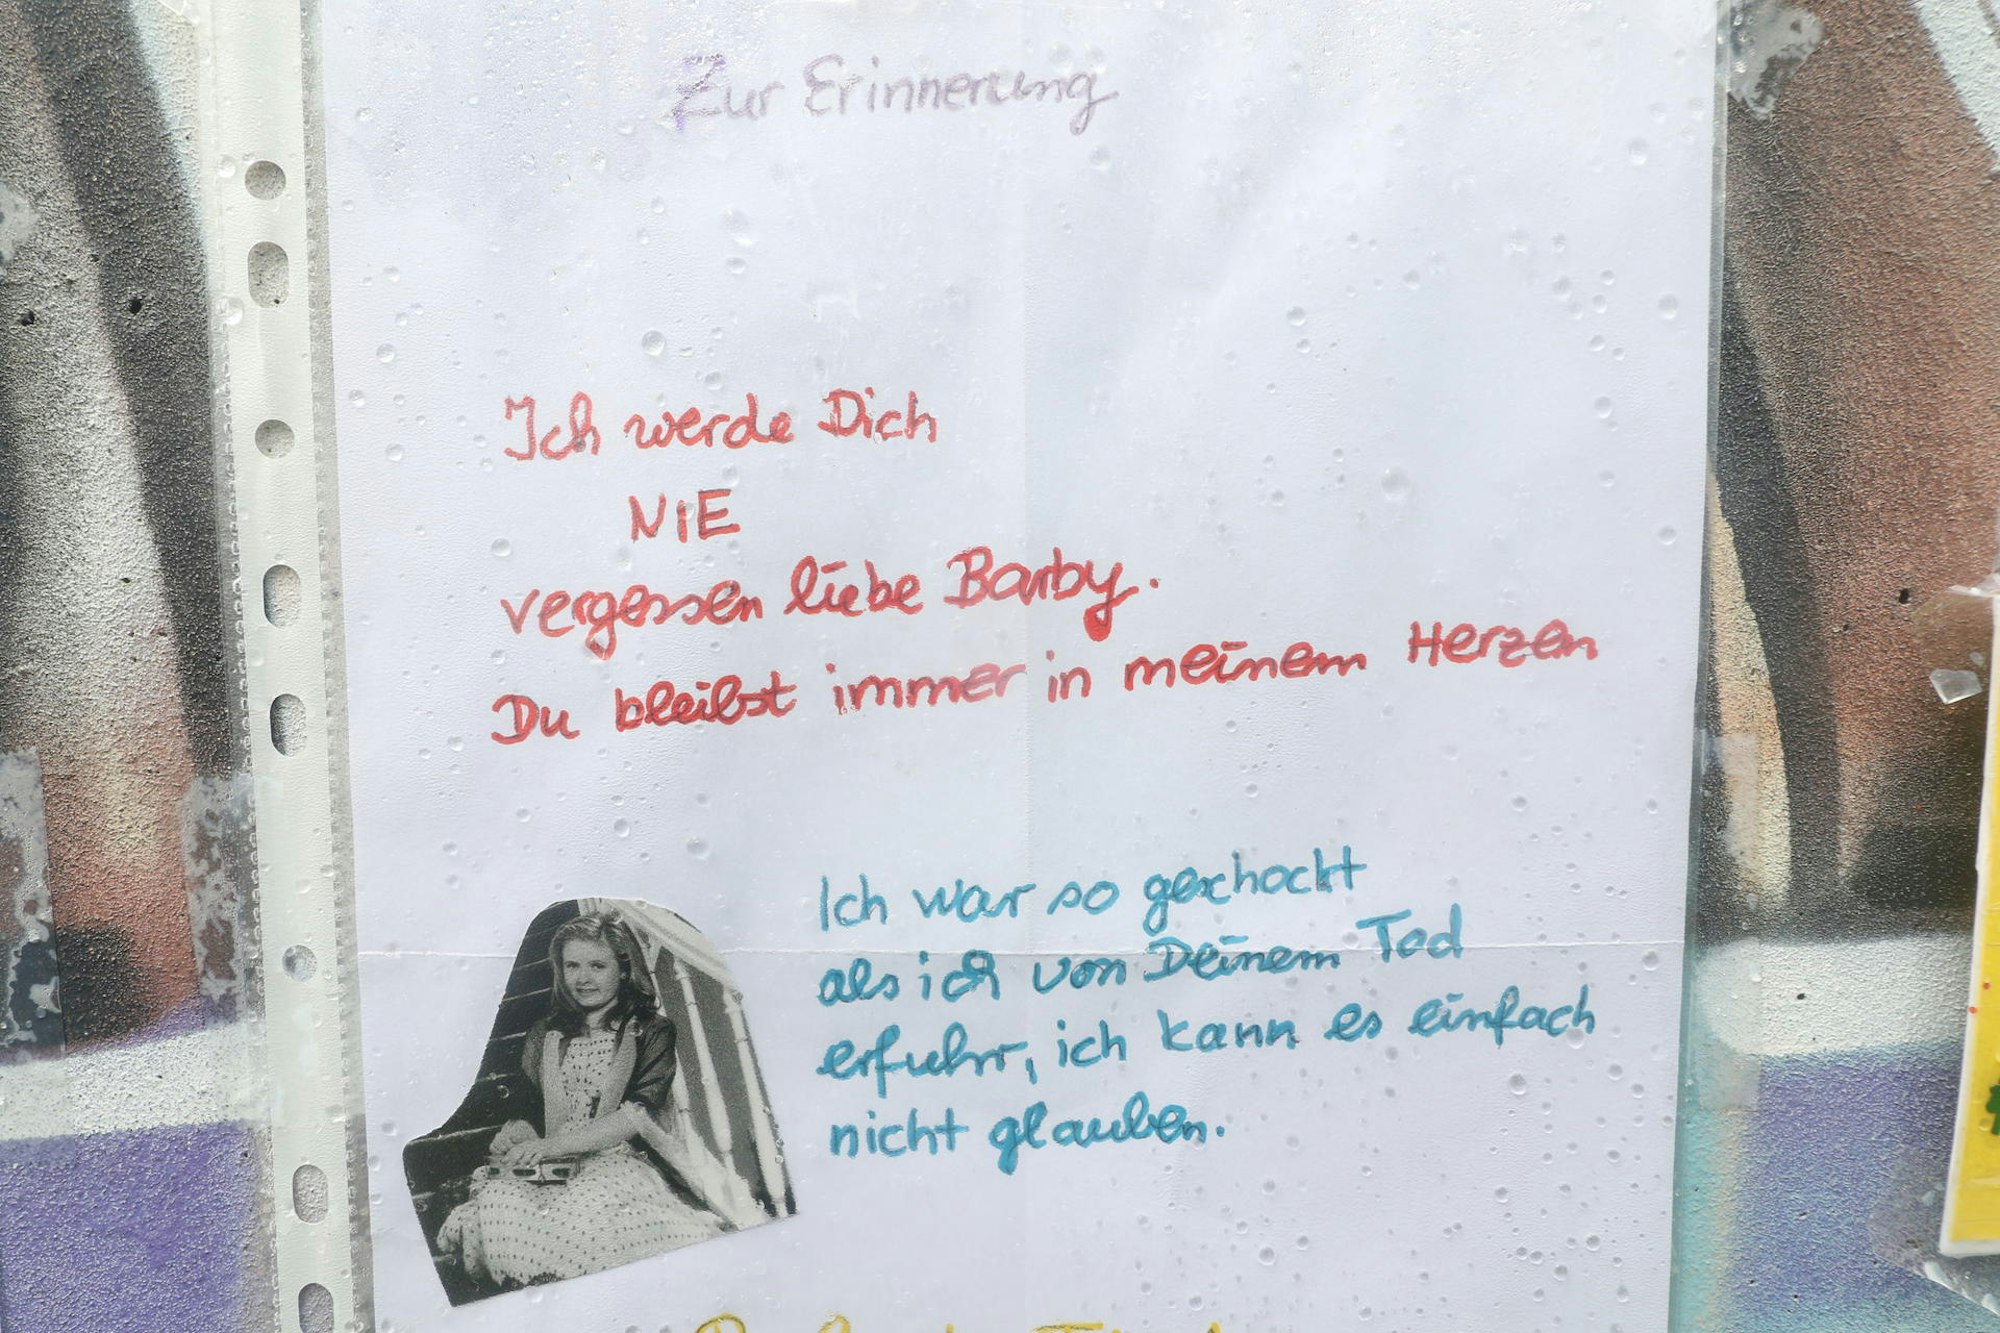 Zur Erinnerung
Ich werde Dich
NIE
vergessen liebe Barby.
Du bleibst immer in meinem Herzen
Ich war so geschockt
als ich von Deinem Tod
erfuhr, ich kann es einfach
nicht glauben.